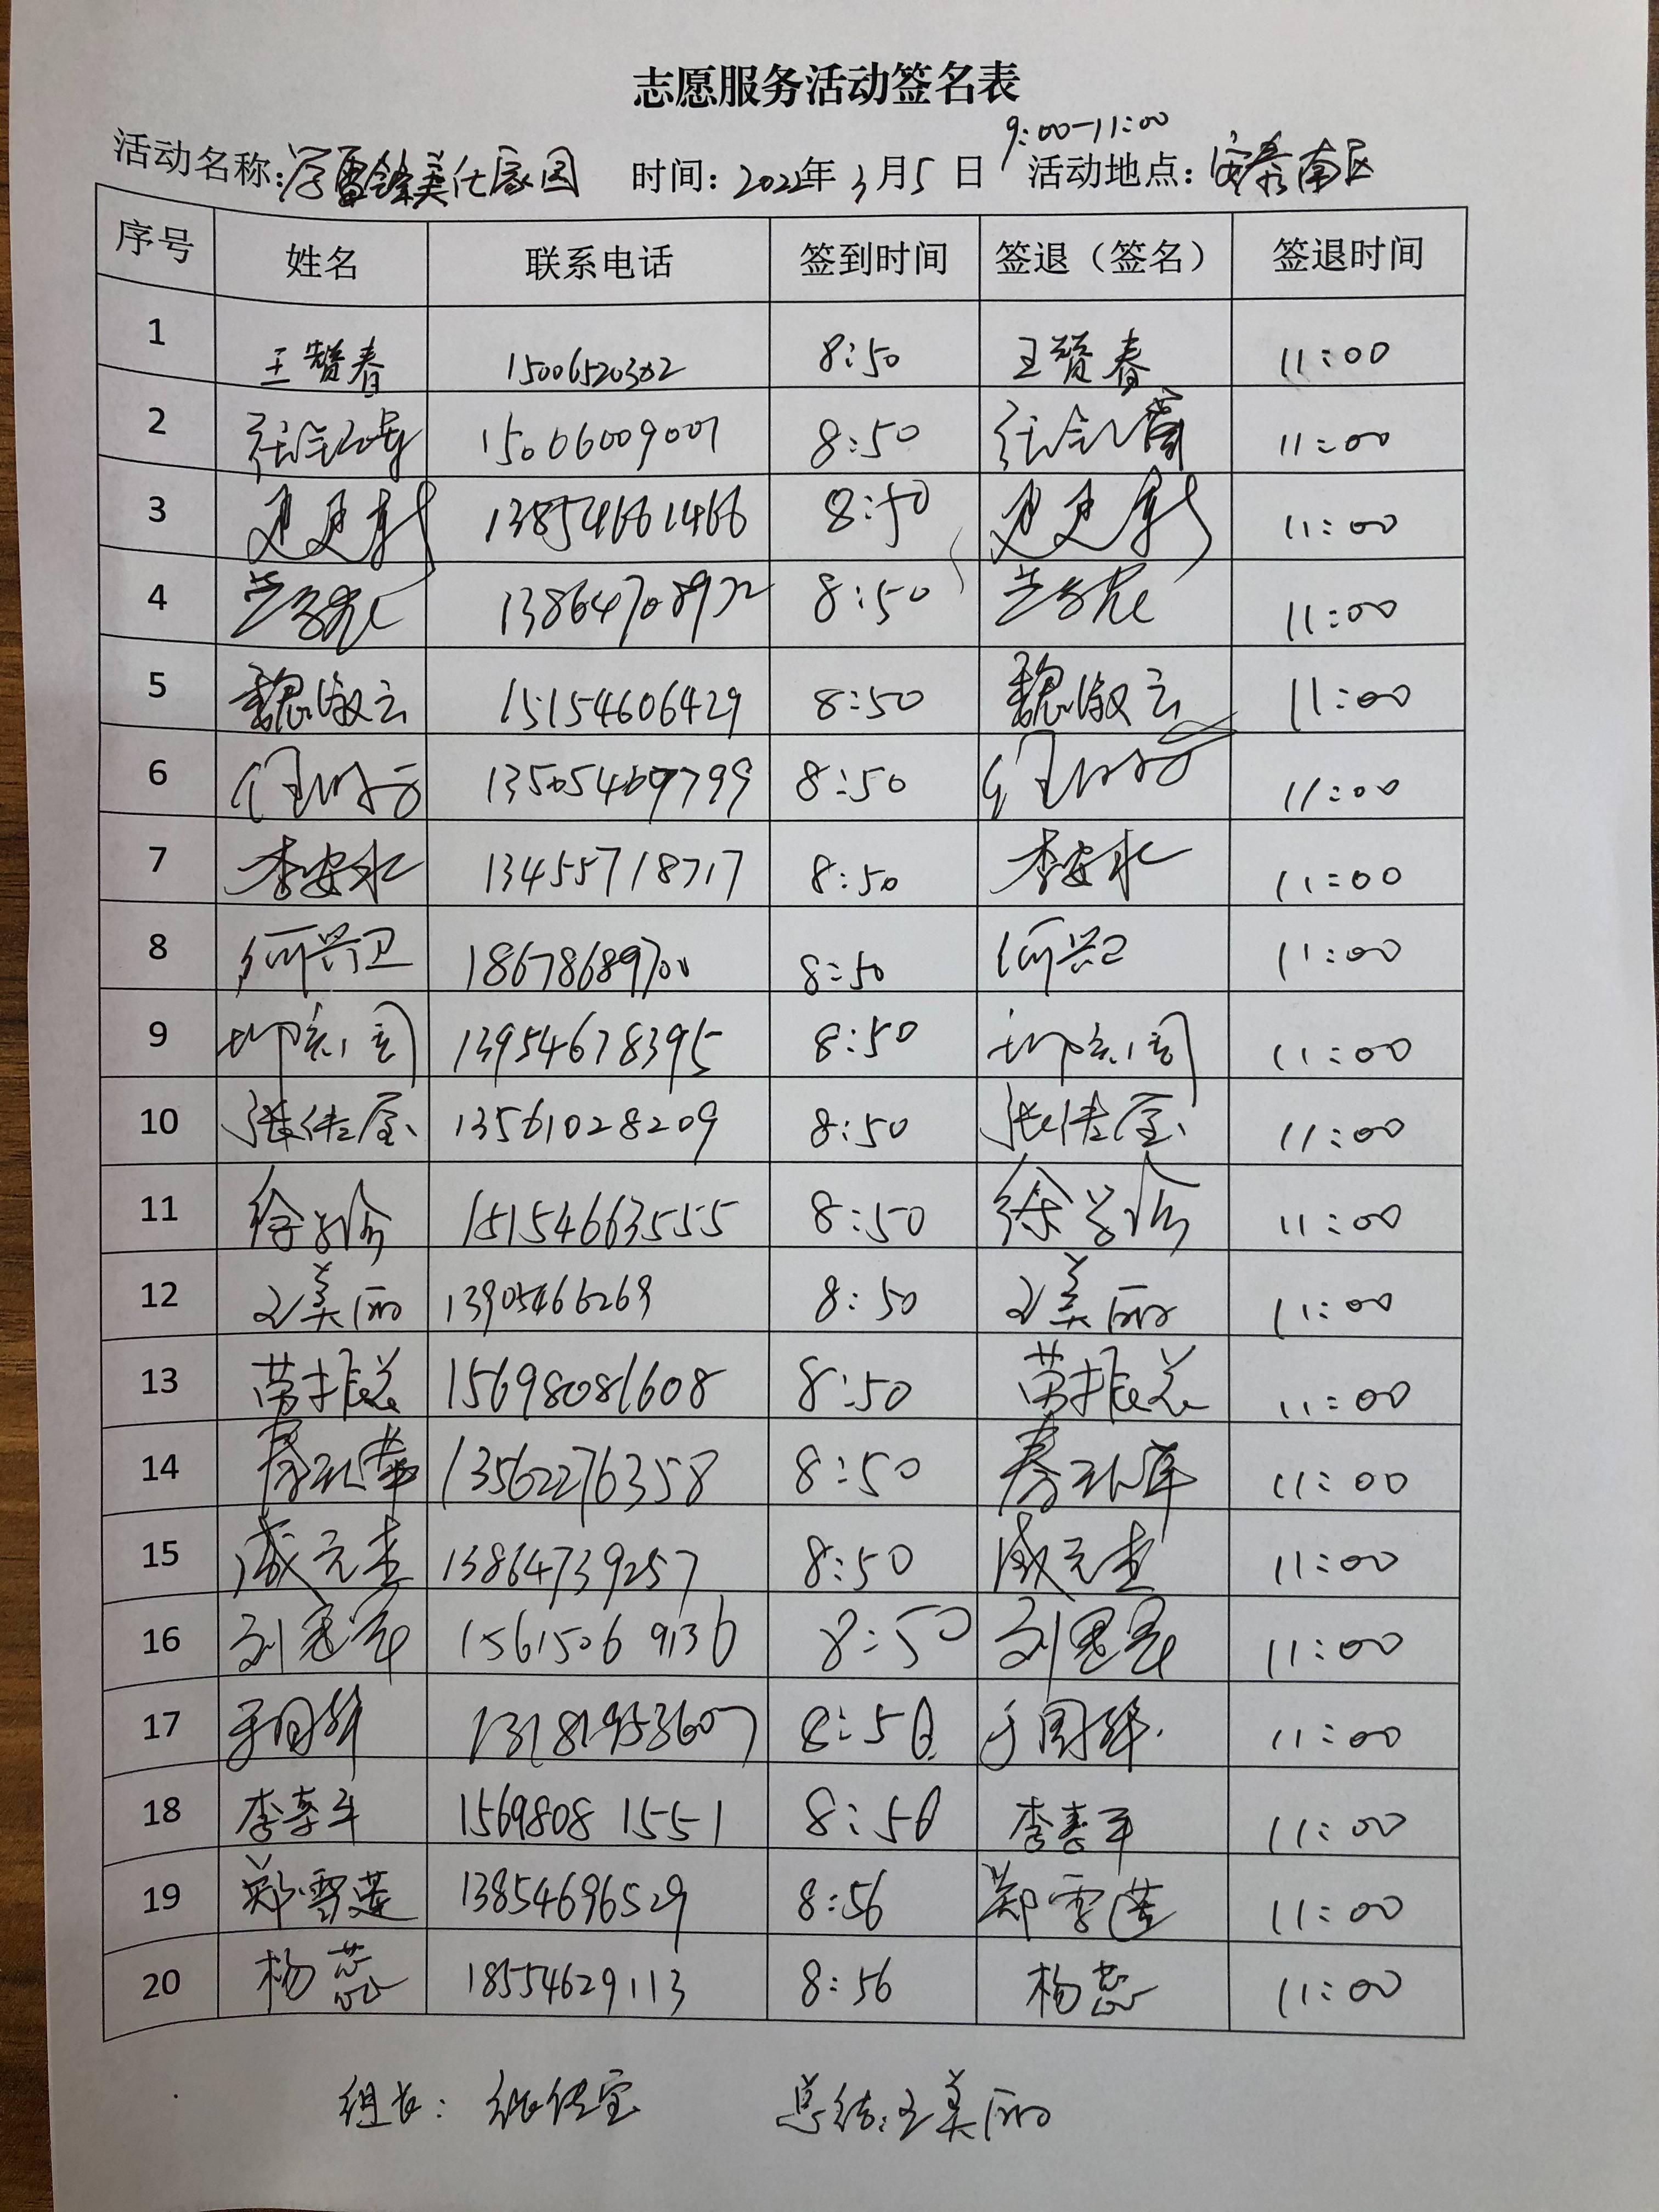 志愿服务活动签名表
9:00-11:00
活动名称:学雷锋美化家园 时间:2022年3月5日 活动地点:安泰南区
序号 姓名 联系电话 签到时间 签退(签名) 签退时间
1 王赞春 15006520302 8:50 王赞春 11:00
2 15006009007 8:50 11:00
3 13854661466 8:50 11:00
4 13864708972 8:50 11:00
5 魏淑云 15154606429 8:50 魏淑云 11:00
6 13505469799 8:50 11:00
7 李安水 13455718717 8:50 李安水 11:00
8 何兴卫 18678689700 8:50 何兴卫 11:00
9 13954678395 8:50 11:00
10 张传宝 13561028209 8:50 张传宝 11:00
11 徐学俭 15154663555 8:50 徐学俭 11:00
12 王美丽 13905466269 8:50 王美丽 11:00
13 苗振总 15698081608 8:50 苗振总 11:00
14 13562276358 8:50 11:00
15 戚元杰 13864739257 8:50 戚元杰 11:00
16 15615069136 8:50 11:00
17 于国华 13181953607 8:50 于国华 11:00
18 李春平 15698081551 8:50 李春平 11:00
19 郑雪莲 13854696529 8:56 郑雪莲 11:00
20 杨蕊 18554629113 8:56 杨蕊 11:00
组长: 张传宝 总结:王美丽